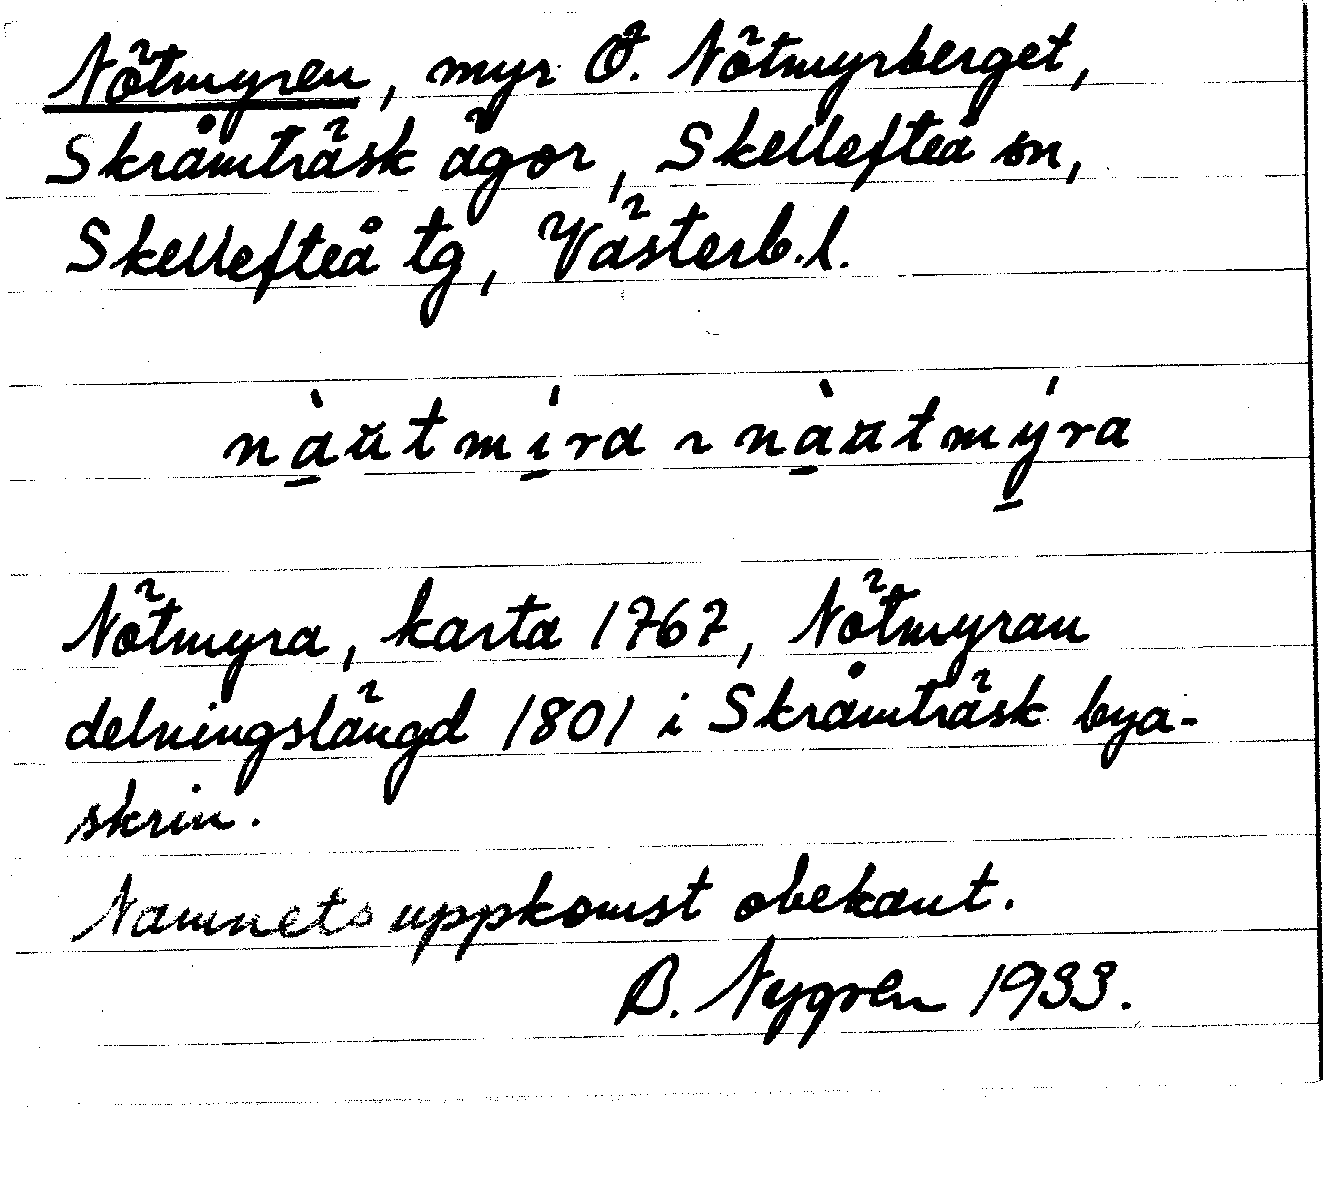 Nötmyren, myr Ö. Nötmyrberget,
Skråmträsk ägor, Skellefteå sn,
Skellefteå tg, Västerb.l.
nà̱ŭtmí̱ra ~ nà̱ŭtmý̱ra
Nötmyra, karta 1767, Nötmyran
delningslängd 1801 i Skråmträsk bya-
skrin.
Namnets uppkomst obekant.
B. Nygren 1933.